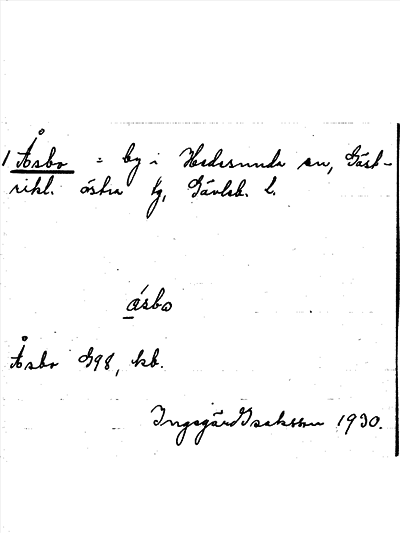 1 Åsbo = by i Hedesunda sn, Gäst-
rikl. östra tg, Gävleb. l.
åsbo
Åsbo G98, kb.
Ingegärd Isaksson 1930.